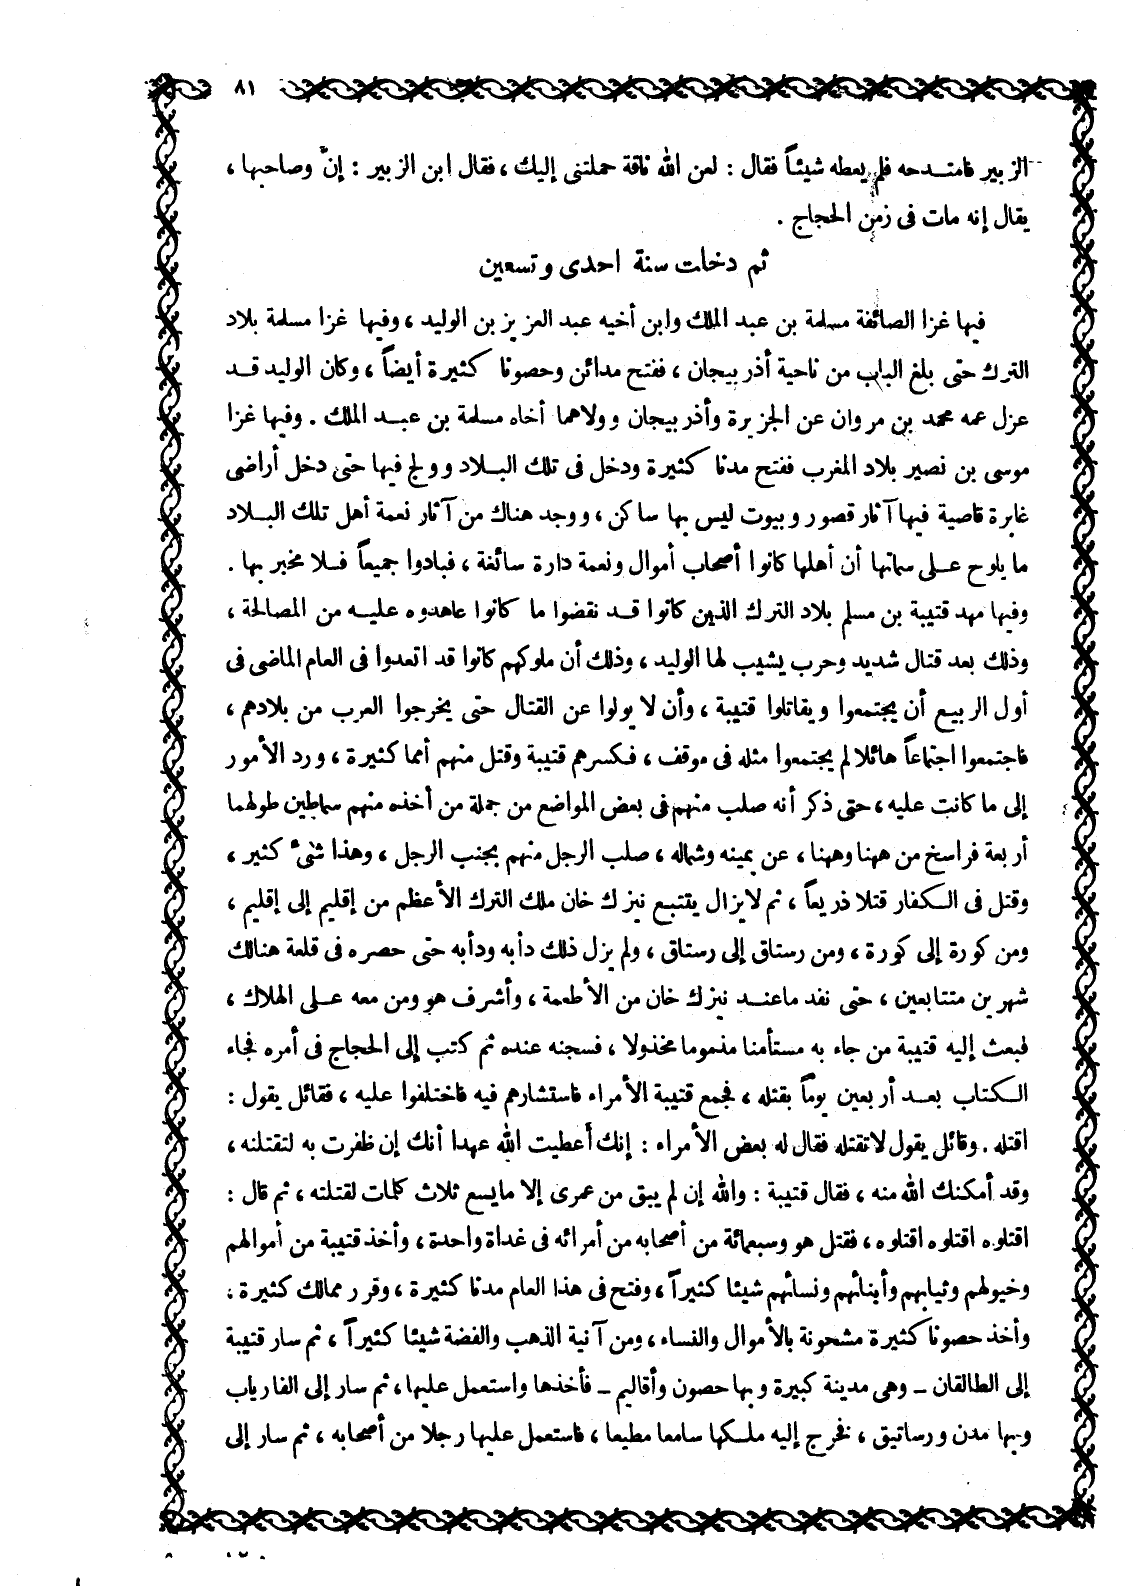 ٨١
الزبير فامتدحه فلم يعطه شيئاً فقال : لعن الله ناقة حملتنى إليك ، فقال ابن الزبير : إنّ وصاحبها ،
يقال إنه مات فى زمن الحجاج .
ثم دخلت سنة احدى وتسعين
فيها غزا الصائفة مسلمة بن عبد الملك وابن أخيه عبد العزيز بن الوليد ، وفيها غزا مسلمة بلاد
الترك حتى بلغ الباب من ناحية أذربيجان ، ففتح مدائن وحصونا كثيرة أيضاً ، وكان الوليد قد
عزل عمه محمد بن مروان عن الجزيرة وأذربيجان وولاهما أخاه مسلمة بن عبد الملك . وفيها غزا
موسى بن نصير بلاد المغرب ففتح مدنا كثيرة ودخل فى تلك البلاد وولج فيها حتى دخل أراضى
غابرة قاصية فيها آثار قصور وبيوت ليس بها ساكن ، ووجد هناك من آثار نعمة أهل تلك البلاد
ما يلوح على سماتها أن أهلها كانوا أصحاب أموال ونعمة دارة سائغة ، فبادوا جميعاً فلا مخبر بها .
وفيها مهد قتيبة بن مسلم بلاد الترك الذين كانوا قد نقضوا ما كانوا عاهدوه عليه من المصالحة ،
وذلك بعد قتال شديد وحرب يشيب لها الوليد ، وذلك أن ملوكهم كانوا قد اتعدوا فى العام الماضى فى
أول الربيع أن يجتمعوا ويقاتلوا قتيبة ، وأن لا يولوا عن القتال حتى يخرجوا العرب من بلادهم ،
فاجتمعوا اجتماعاً هائلا لم يجتمعوا مثله فى موقف ، فكسرهم قتيبة وقتل منهم أمما كثيرة ، ورد الأمور
إلى ما كانت عليه ، حتى ذكر أنه صلب منهم فى بعض المواضع من جملة من أخذه منهم سماطين طولهما
أربعة فراسخ من ههنا وههنا ، عن يمينه وشماله ، صلب الرجل منهم بجنب الرجل ، وهذا شىء كثير ،
وقتل فى الكفار قتلا ذريعاً ، ثم لا يزال يتتبع نيزك خان ملك الترك الأعظم من إقليم إلى إقليم ،
ومن كورة إلى كورة ، ومن رستاق إلى رستاق ، ولم يزل ذلك دأبه ودأبه حتى حصره فى قلعة هنالك
شهرين متتابعين ، حتى نفد ما عند نيزك خان من الأطعمة ، وأشرف هو ومن معه على الهلاك ،
فبعث إليه قتيبة من جاء به مستأمنا مذموما مخذولا ، فسجنه عنده ثم كتب إلى الحجاج فى أمره فجاء
الكتاب بعد أربعين يوماً بقتله ، فجمع قتيبة الأمراء فاستشارهم فيه فاختلفوا عليه ، فقائل يقول :
اقتله . وقائل يقول لا تقتله فقال له بعض الأمراء : إنك أعطيت الله عهدا أنك إن ظفرت به لتقتلنه ،
وقد أمكنك الله منه ، فقال قتيبة : والله إن لم يبق من عمرى إلا ما يسع ثلاث كلمات لقتلته ، ثم قال :
اقتلوه اقتلوه اقتلوه ، فقتل هو وسبعمائة من أصحابه من أمرائه فى غداة واحدة ، وأخذ قتيبة من أموالهم
وخيولهم وثيابهم وأبنائهم ونسائهم شيئا كثيراً ، وفتح فى هذا العام مدنا كثيرة ، وقرر ممالك كثيرة ،
وأخذ حصونا كثيرة مشحونة بالأموال والنساء ، ومن آنية الذهب والفضة شيئا كثيراً ، ثم سار قتيبة
إلى الطالقان ــ وهى مدينة كبيرة وبها حصون وأقاليم ــ فأخذها واستعمل عليها ، ثم سار إلى الفارياب
وبها مدن ورساتيق ، فخرج إليه ملكها سامعا مطيعا ، فاستعمل عليها رجلا من أصحابه ، ثم سار إلى